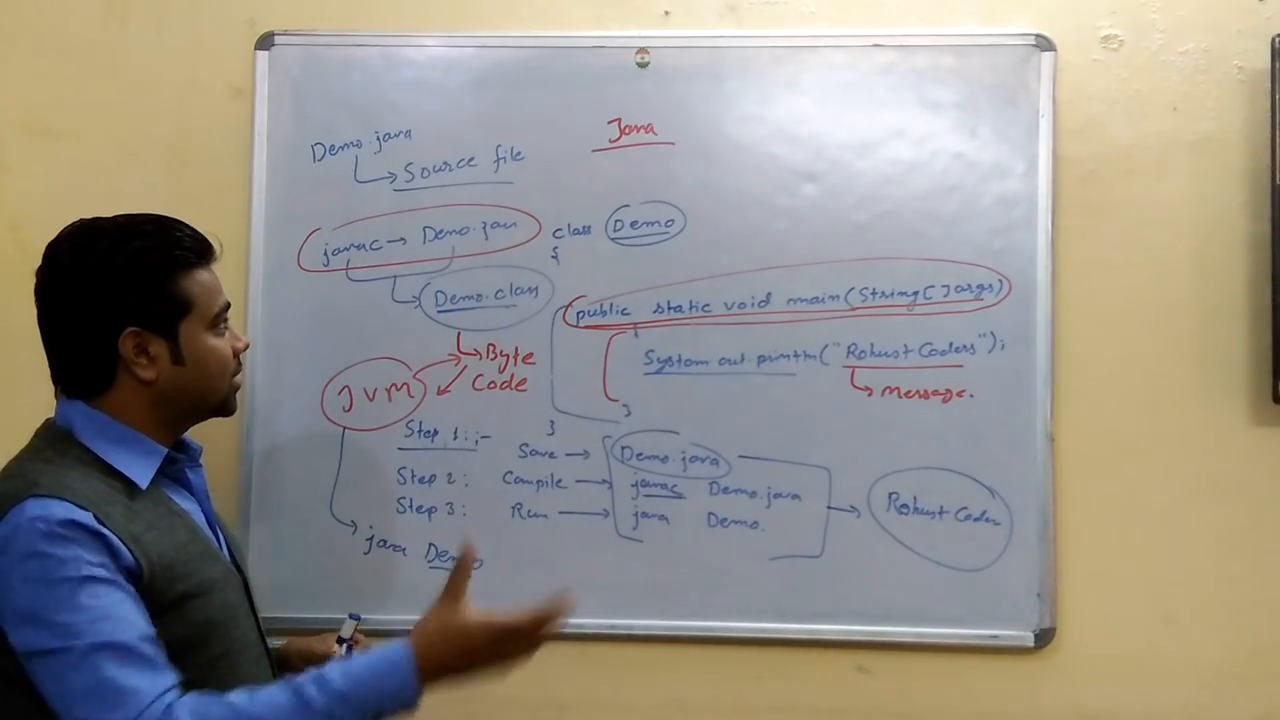 Java
Demo.java
Source file
javac → Demo.java
Demo.class
Byte
Code
JVM
class Demo
{
public static void main(String[]args)
{
System.out.println("Robust Coders");
message.
}
}
Step 1:- Save → Demo.java
Step 2: Compile → javac Demo.java
Step 3: Run → java Demo.
Robust Coder
java Demo